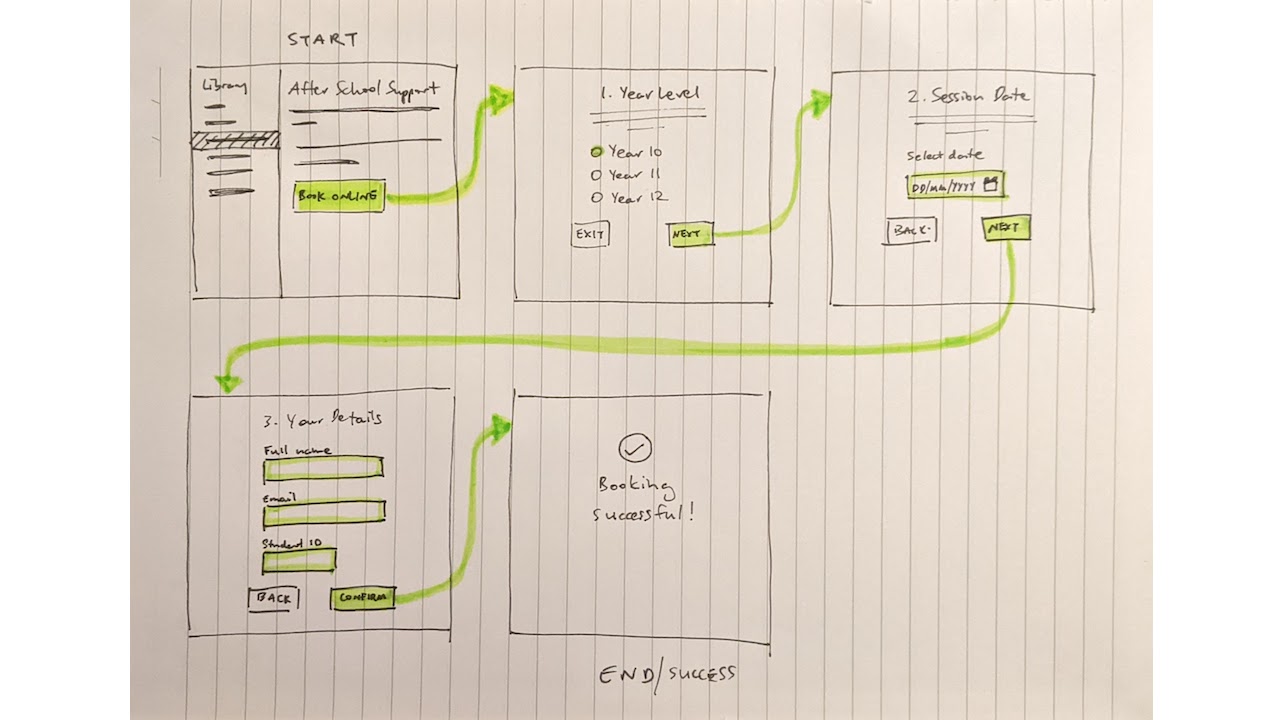 START
Library
After School Support
BOOK ONLINE
1. Year Level
Year 10
Year 11
Year 12
EXIT
NEXT
2. Session Date
Select date
DD/MM/YYYY
BACK
NEXT
3. Your Details
Full name
Email
Student ID
BACK
CONFIRM
Booking
successful!
END/SUCCESS